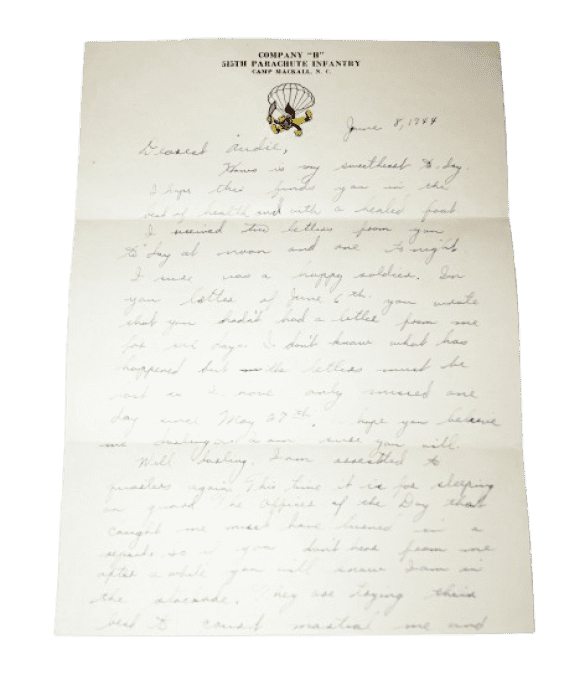 COMPANY "H"
515TH PARACHUTE INFANTRY
CAMP MACKALL, N. C.
June 8, 1944
Dearest
is my sweetheart to-day.
I hope this finds you in the
best of health and with a healed foot
I received two letters from you
to-day at noon and one to-night.
I sure was a happy soldier. In
your letter of June 6th. you wrote
that you hadn't had a letter from me
for six days. I don't know what has
happened but the letters must be
lost as I have only missed one
day since May 27th. I hope you believe
me darling as I am sure you will.
Well darling, I am arrested to
quarters again. This time it is for sleeping
on guard. The officer of the Day that
caught me must have turned in a
so if you don't hear from me
after a while you will know I am in
the They are trying their
best to court martial me and